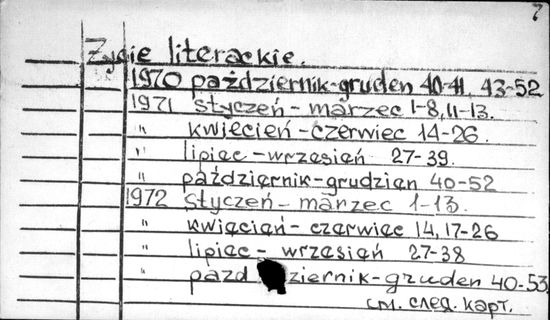 7
Życie literackie.
1970 październik-gruden 40-41, 43-52
1971 styczeń - marzec 1-8, 11-13.
" kwiecień - czerwiec 14-26.
" lipiec - wrzesień 27-39.
" październik-grudzien 40-52
1972 styczeń - marzec 1-13.
" kwięcień - czerwiec 14, 17-26
" lipiec - wrzesień 27-38
" pazd ziernik-gruden 40-53
см. след. карт.